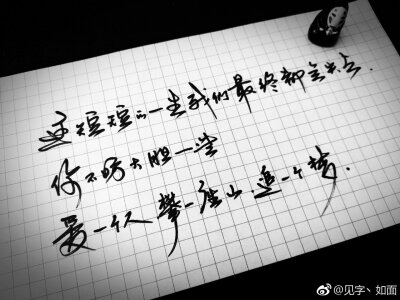 这短短的一生我们最终都会失去.
你不妨大胆一些
爱一个人 攀一座山 追一个梦.
@见字丶如面